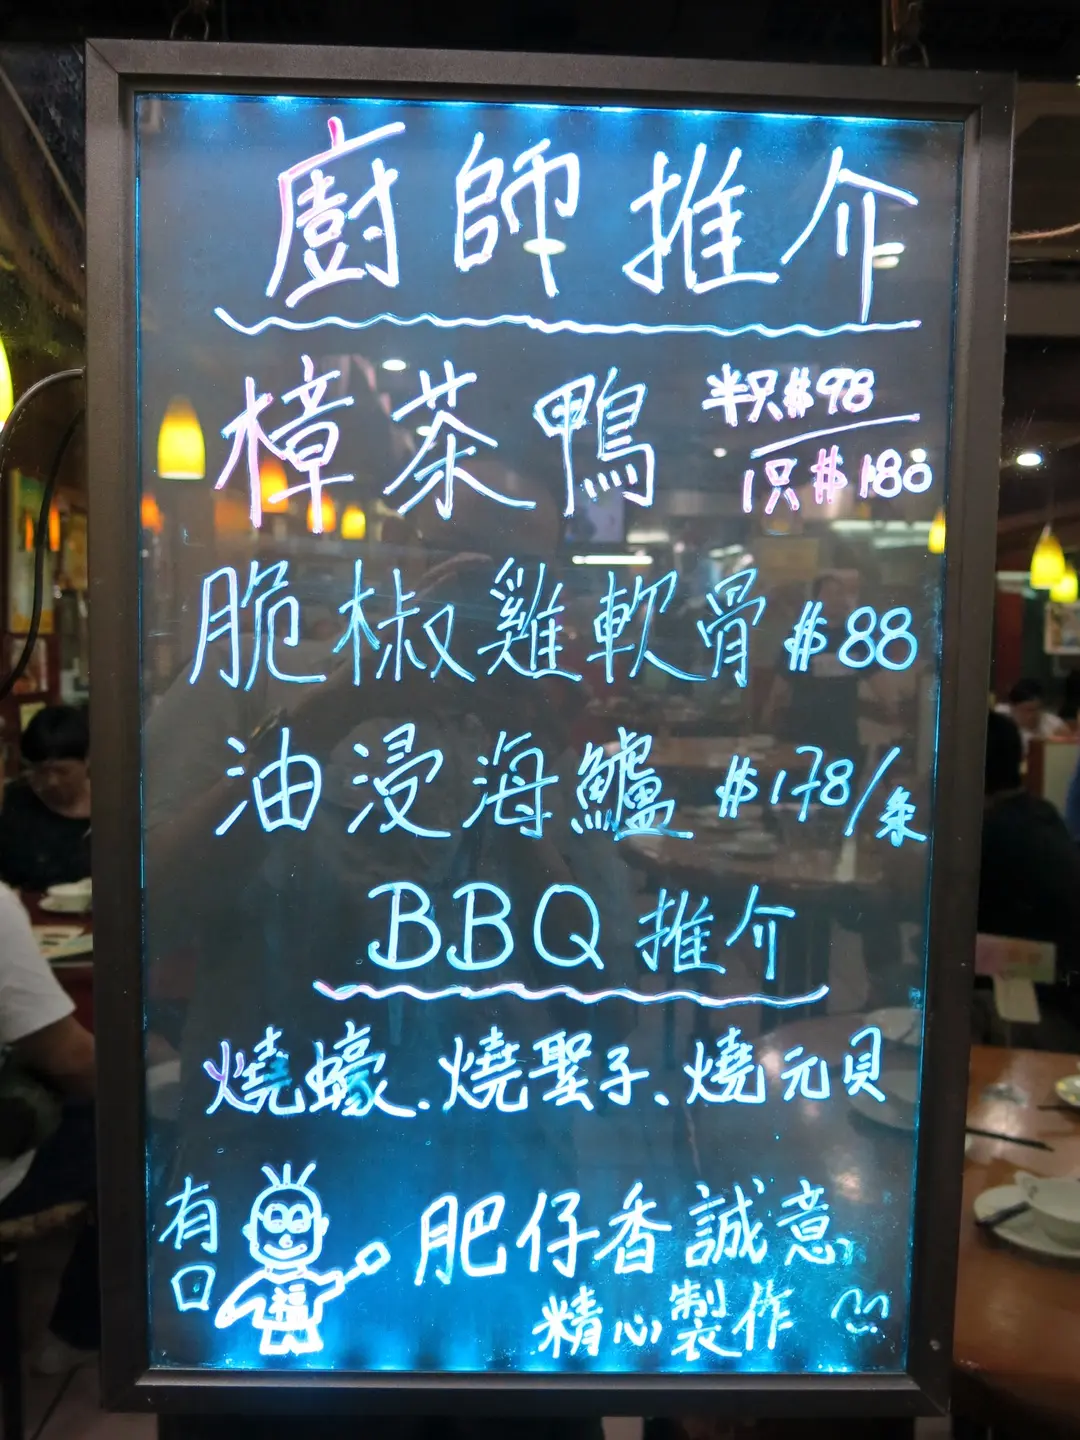 廚師推介
樟茶鴨 半只$98
1只$180
脆椒雞軟骨 $88
油浸海鱸 $178/条
BBQ推介
燒蠔、燒聖子、燒元貝
有口
福
肥仔香誠意
精心製作